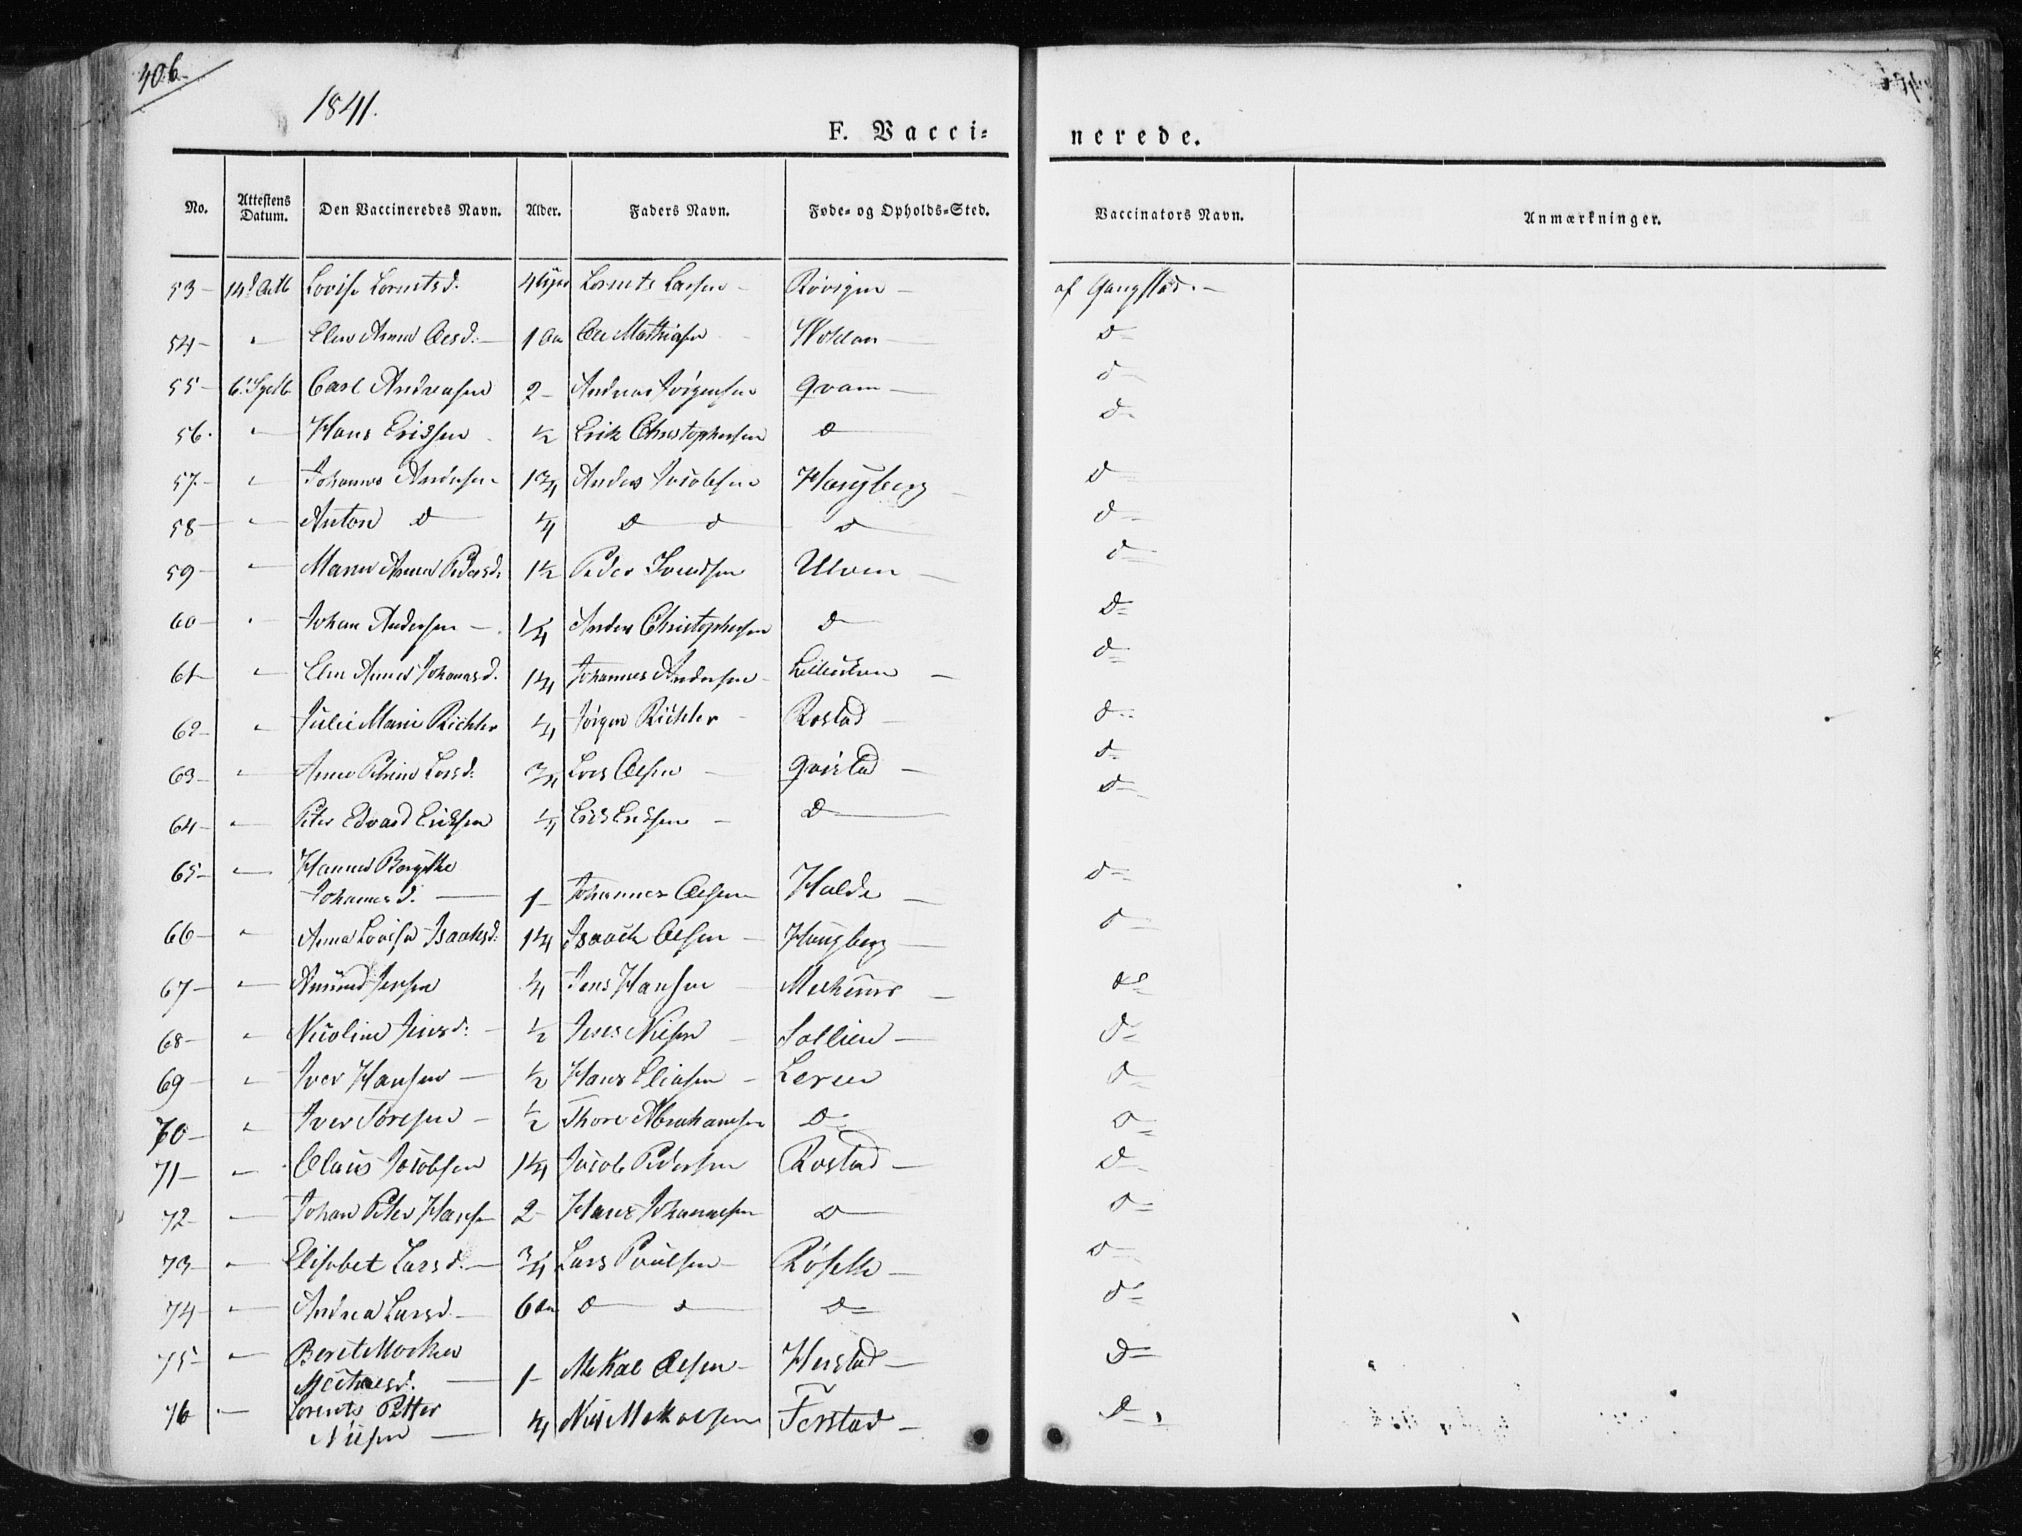 406
1841.
F. Vacci=
nerede.
No. Attestens Datum. Den Vaccineredes Navn. Alder. Faders Navn. Føde= og Opholds=Sted. Vaccinators Navn. Anmærkninger.
53 - Lovise 4 Lorents Larsen - af Gangstad. -
54 - " Elen Anna Olesd: - 1 Ole Mathiasen - d=
55 - Carl Andreasen 2 - Andreas Jørgensen Qvam - d=
56. " Hans Eriksen - ½ Erik Christophersen d d=
57. " Johannes Andersen 1¾ Anders Jacobsen Haugberg - d=
58 - " Anton d ¼ d d d d=
59 - " Anna Pedersd: 1½ Peder Ulven - d=
60 - " Johan Andersen - 1¼ Anders Christophersen d d=
61 - " Elen Anna Johanesd. 1¼ Johannes Andersen - d=
62 - " Julie Marie Richter ¼ Jørgen Richter - Rostad - d=
63 - " Anne Petrine Larsd: ¾ Lars Olsen - Qvistad - d=
64 - " Peter Edvard Eriksen ¼ Erik Eriksen - d d=
65 - " Hanna
Johannesd. - 1 - Johannes Olsen Halde - d=
66 - " Anna Lovise Isaaksd: 1¼ Isaach Olsen - Haugberg - d=
67 - " Amund Jensen ¼ Jens Hansen - d=
68 - " Nicoline Jensd: - ½ Jens Nilsen - Sollien - d=
69 - " Iver Hansen - ½ Hans Eliasen - Leren d=
70 - " Iver Toresen - ½ Thore Abrahamsen d d=
71 - " Olaus Jacobsen 1¼ Jacob Pedersen Rostad - d=
72 - " Johan Peter Hansen 2 - Hans Johannesen d d=
73 - " Elisabet Larsd. - ¾ Lars Poulsen - d=
74 - " Andrea Larsd. - 6 d d d= d=
75 - " Beret
- 1 - Mikal Olsen - Hustad - d=
76 " Lorents Petter
Nilsen - ¼ Nils Mikalsen Ferstad - d=